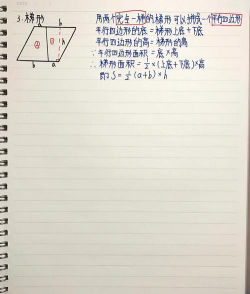 3.梯形
用两个完全一样的梯形可以拼成一个平行四边形
平行四边形的底=梯形上底+下底
平行四边形的高=梯形的高
∵平行四边形面积=底×高
∴梯形面积=1/2×(上底+下底)×高
即S=1/2(a+b)×h
a b
① ② h
b a